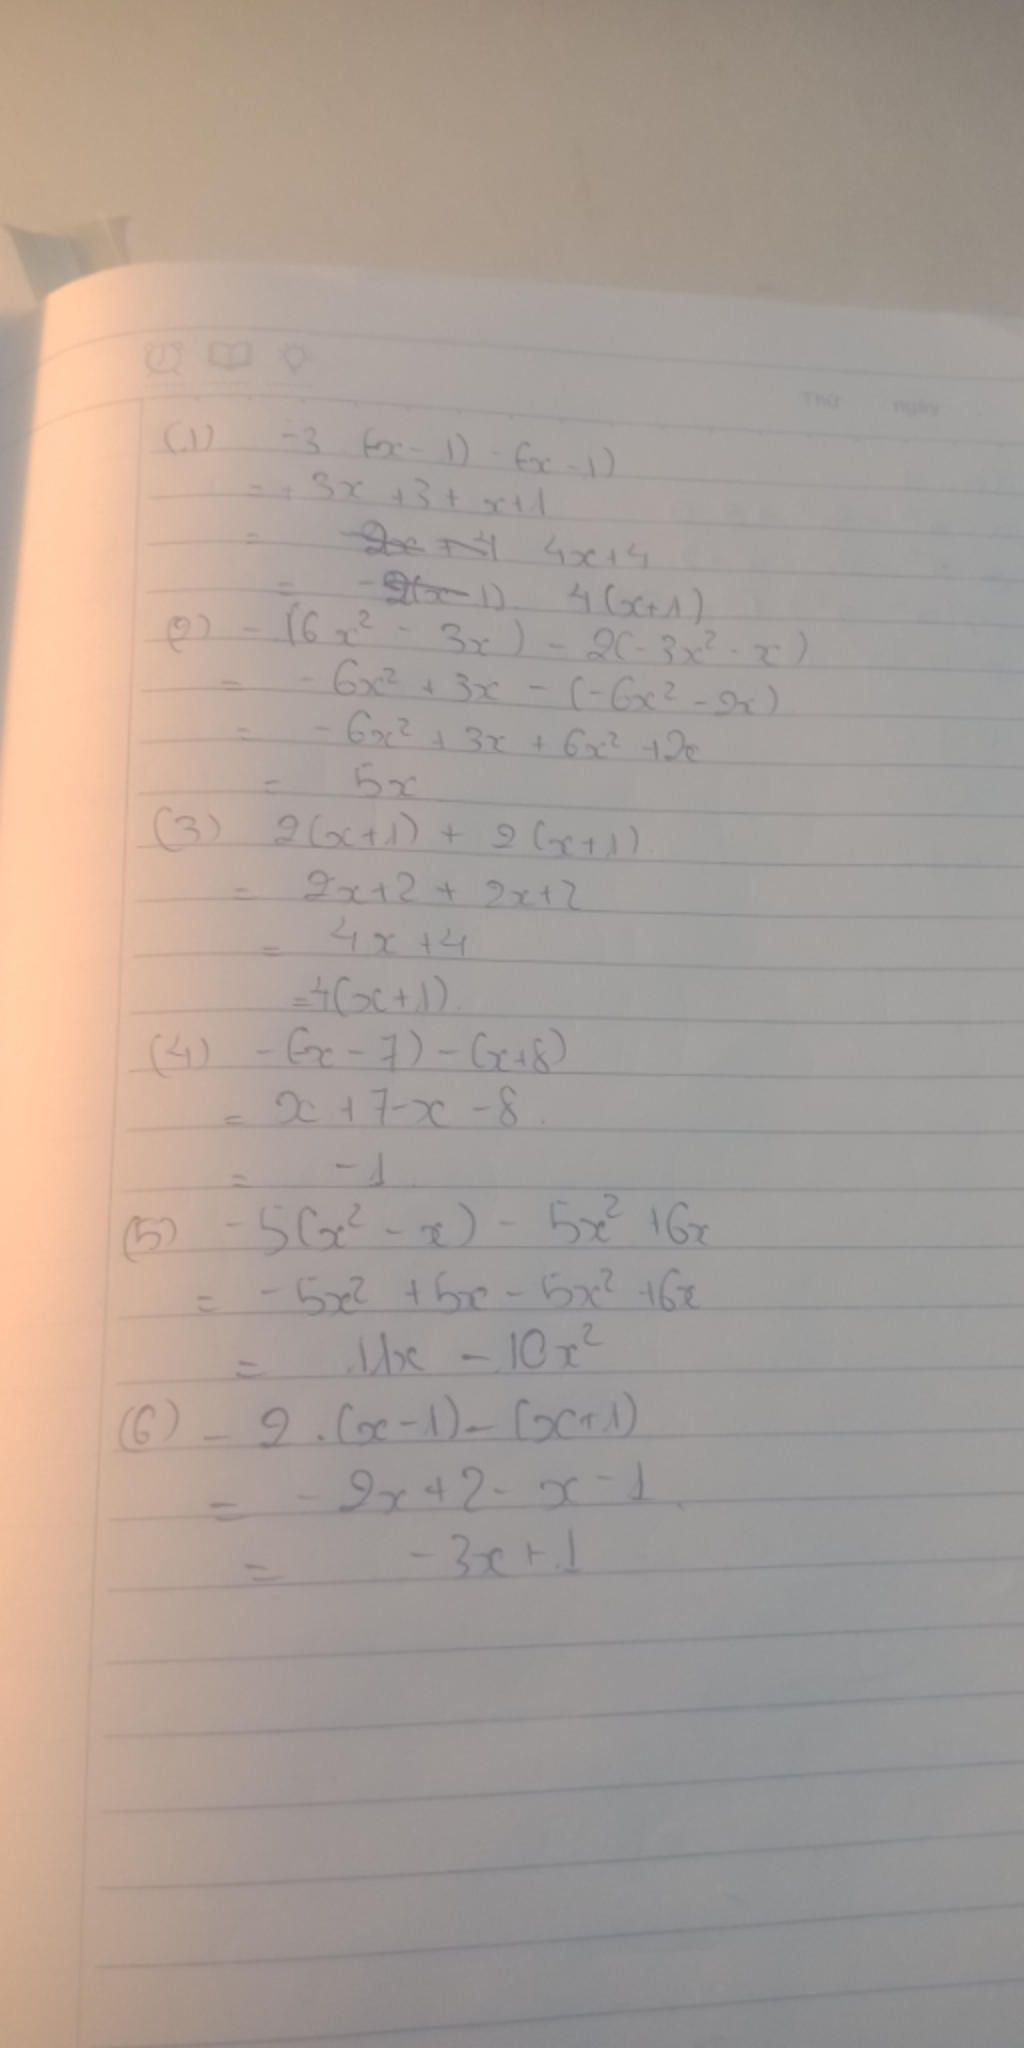 Thứ ngày
(1) -3 (-x - 1) - (-x - 1)
= + 3x + 3 + x + 1
= -2x + 4 4x + 4
= -2(x - 1) 4(x+1)
(2) - (6x² - 3x) - 2(-3x² - x)
= - 6x² + 3x - (-6x² - 2x)
= - 6x² + 3x + 6x² + 2x
= 5x
(3) 2(x+1) + 2(x+1)
= 2x+2 + 2x+2
= 4x + 4
= 4(x+1).
(4) - (-x - 7) - (x+8)
= x + 7 - x - 8.
= -1
(5) - 5(x² - x) - 5x² + 6x
= - 5x² + 5x - 5x² + 6x
= 11x - 10x²
(6) - 2 . (x - 1) - (x+1)
= - 2x + 2 - x - 1
= - 3x + 1